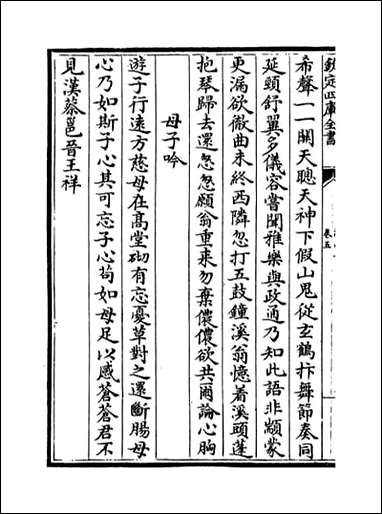 欽定四庫全書
卷五
希聲一一關天聰天神下假山鬼從玄鶴抃舞節奏同
延頸舒翼多儀容嘗聞雅樂與政通乃知此語非顓蒙
更漏欲徹曲未終西隣忽打五鼓鐘溪翁憶着溪頭蓬
抱琴歸去還怱怱願翁重來勿棄儂儂欲共爾論心胸
母子吟
遊子行遠方慈母在高堂砌有忘憂草對之還斷腸母
心乃如斯子心其可忘子心茍如母足以感蒼蒼君不
見漢蔡邕晉王祥